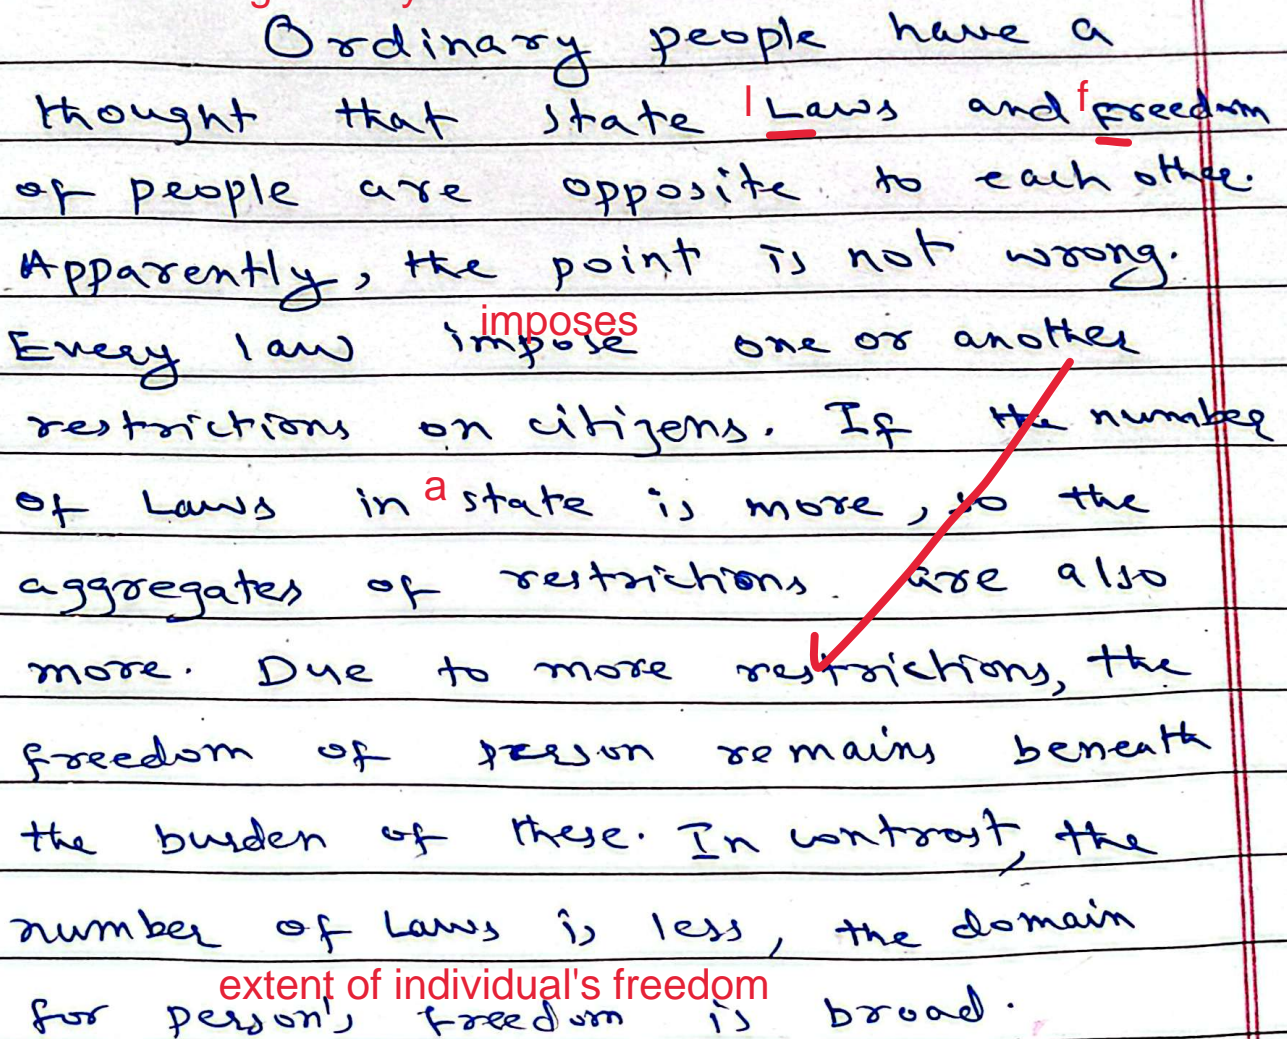 Ordinary people have a
thought that state l Laws and f Freedom
of people are opposite to each other.
Apparently, the point is not wrong.
imposes
Every law impose one or another
restrictions on citizens. If the number
of Laws in a state is more, so the
aggregates of restrictions are also
more. Due to more restrictions, the
freedom of person remains beneath
the burden of these. In contrast, the
number of Laws is less, the domain
extent of individual's freedom
for person's freedom is broad.